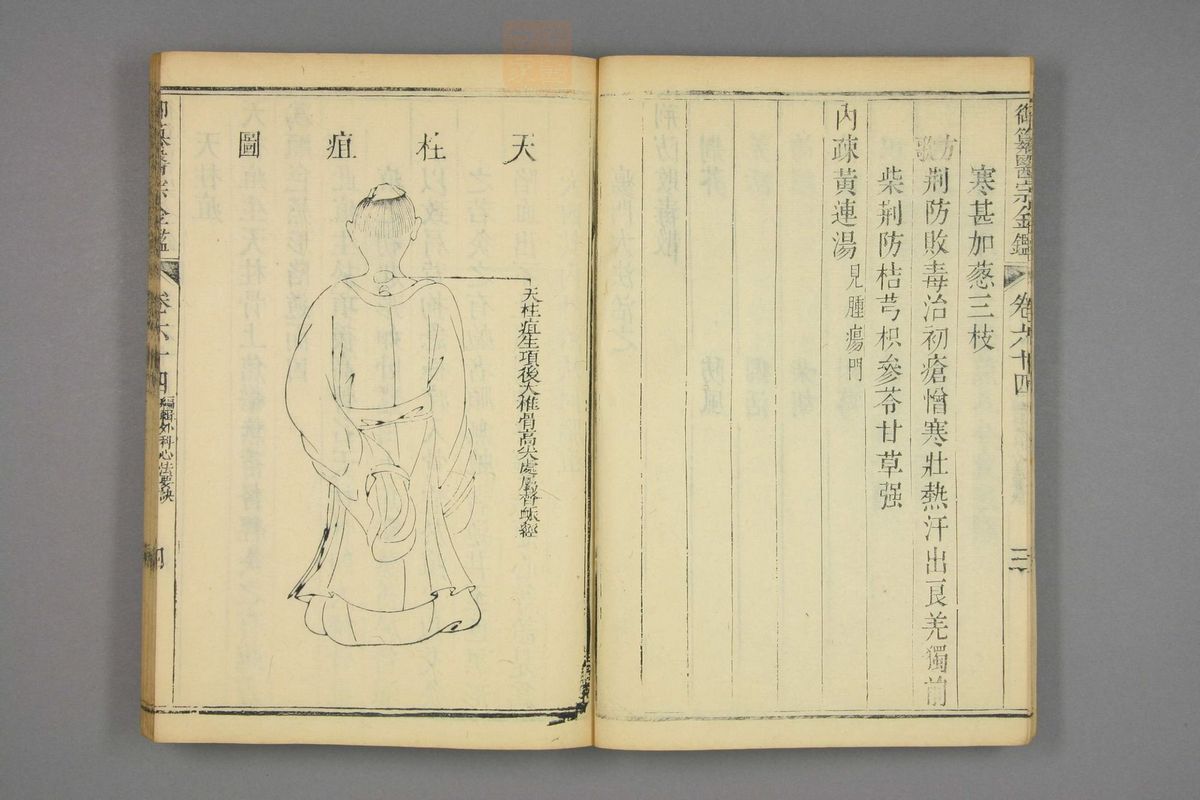 御纂醫宗金鑑
卷六十四
三
寒甚加蔥三枝
方歌
荆防敗毒治初瘡憎寒壯熱汗出良羌獨前
柴荆防桔芎枳參苓甘草强
內疎黃連湯見腫瘍門
天柱疽圖
天柱疽生項後大椎骨高尖處屬督脉經
卷六十四
編輯外科心法要訣
四